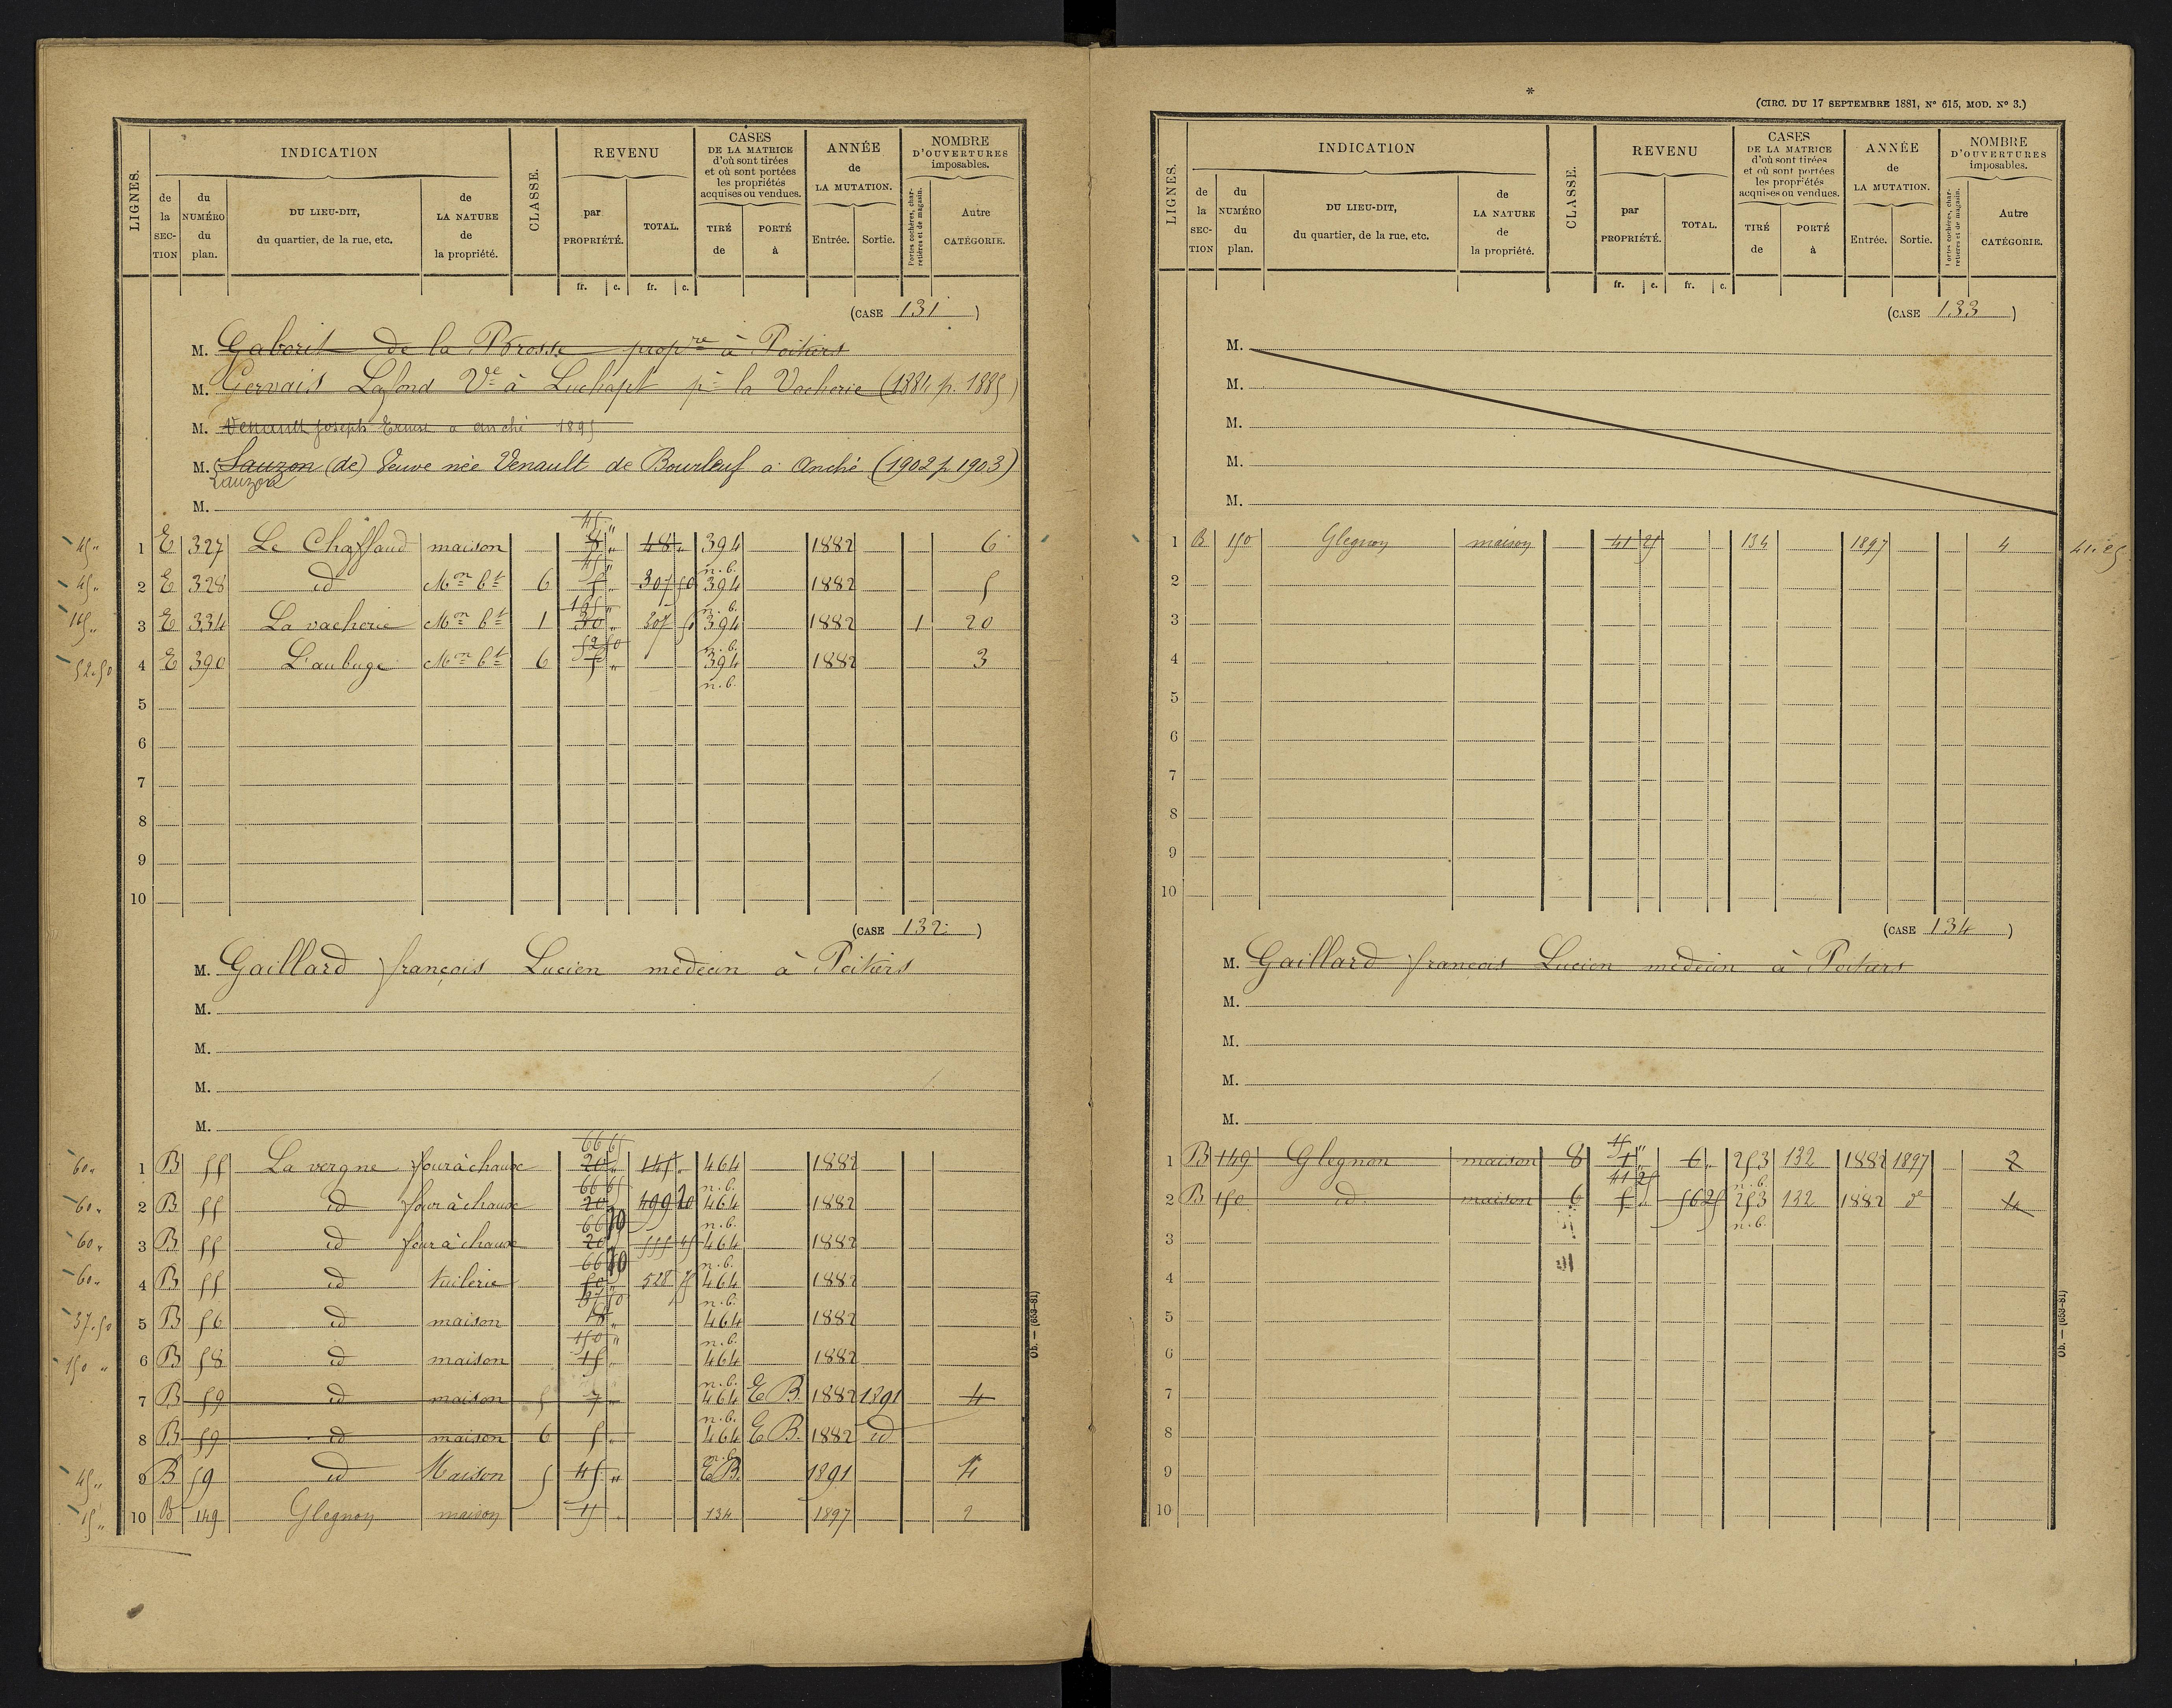 LIGNES. INDICATION CLASSE. REVENU CASES DE LA MATRICE d'où sont tirées et où sont portées les propriétés acquises ou vendues. ANNÉE de LA MUTATION. NOMBRE D'OUVERTURES imposables.
de la SECTION du NUMÉRO du plan. DU LIEU-DIT, du quartier, de la rue, etc. de LA NATURE de la propriété. par PROPRIÉTÉ. TOTAL. TIRÉ de PORTÉ à Entrée. Sortie. Portes cochères, charretières et de magasin. Autre CATÉGORIE.
fr. c. fr. c.
(CASE 131)
M. Gaborit de la Brosse propre à Poitiers
M. Gervais Lafond Ve à Luchapt pr la Vacherie (1884 p. 1885)
M. Venault Joseph Ernest a anché 1895
M. Sauzon (de) Veuve née Venault de Bourleuf a Anché (1902 p 1903)
Lauzon
M.
45 "
45 " 1 E 327 Le Chaffaud maison 8 " 48 " 394 1882 6
45 " n.b.
45 " 2 E 328 id Mon bt 6 5 " 307 50 394 1882 5
165 " n.b.
165 " 3 E 334 La vacherie Mon bt 1 30 " 307 50 394 1882 1 20
52 50 n.b.
52.50 4 E 390 L'aubuge Mon bt 6 5 " 394 1882 3
n.b.
5
6
7
8
9
10
(CASE 132)
M. Gaillard françois Lucien médecin à Poitiers
M.
M.
M.
M.
66 65
60 " 1 B 55 La vergne four à chaux 20 " 145 " 464 1882
66 65 n.b.
60 " 2 B 55 id four à chaux 20 " 499 20 464 1882
66 70 n.b.
60 " 3 B 55 id four à chaux 20 " 555 45 464 1882
66 70 n.b.
60 " 4 B 55 id tuilerie 50 " 528 75 464 1882
37 50 n.b.
37.50 5 B 56 id maison 18 " 464 1882
150 " n.b.
150 " 6 B 58 id maison 15 " 464 1882
n.b.
7 B 59 id maison 5 7 " 464 E B. 1882 1891 4
n.b.
8 B 59 id maison 6 5 " 464 E B. 1882 id
n.b.
45 " 9 B 59 id Maison 5 45 " E B. 1891 4
15 " 10 B 149 Glegnon maison 15 134 1897 2
Ob. — (653-81)
*
(CIRC. DU 17 SEPTEMBRE 1881, N° 615, MOD. N° 3.)
LIGNES. INDICATION CLASSE. REVENU CASES DE LA MATRICE d'où sont tirées et où sont portées les propriétés acquises ou vendues. ANNÉE de LA MUTATION. NOMBRE D'OUVERTURES imposables.
de la SECTION du NUMÉRO du plan. DU LIEU-DIT, du quartier, de la rue, etc. de LA NATURE de la propriété. par PROPRIÉTÉ. TOTAL. TIRÉ de PORTÉ à Entrée. Sortie. Portes cochères, charretières et de magasin. Autre CATÉGORIE.
fr. c. fr. c.
(CASE 133)
M.
M.
M.
M.
M.
1 B 150 Glegnon maison 41 25 134 1897 4 41.25
2
3
4
5
6
7
8
9
10
(CASE 134)
M. Gaillard françois Lucien médecin à Poitiers
M.
M.
M.
M.
15 "
1 B 149 Glegnon maison 8 1 " 6 " 253 132 1882 1897 2
41 25 n.b.
2 B 150 id. maison 6 5 " 56 25 253 132 1882 do 4
n.b.
3
4
5
6
7
8
9
10
Ob. — (653-81)